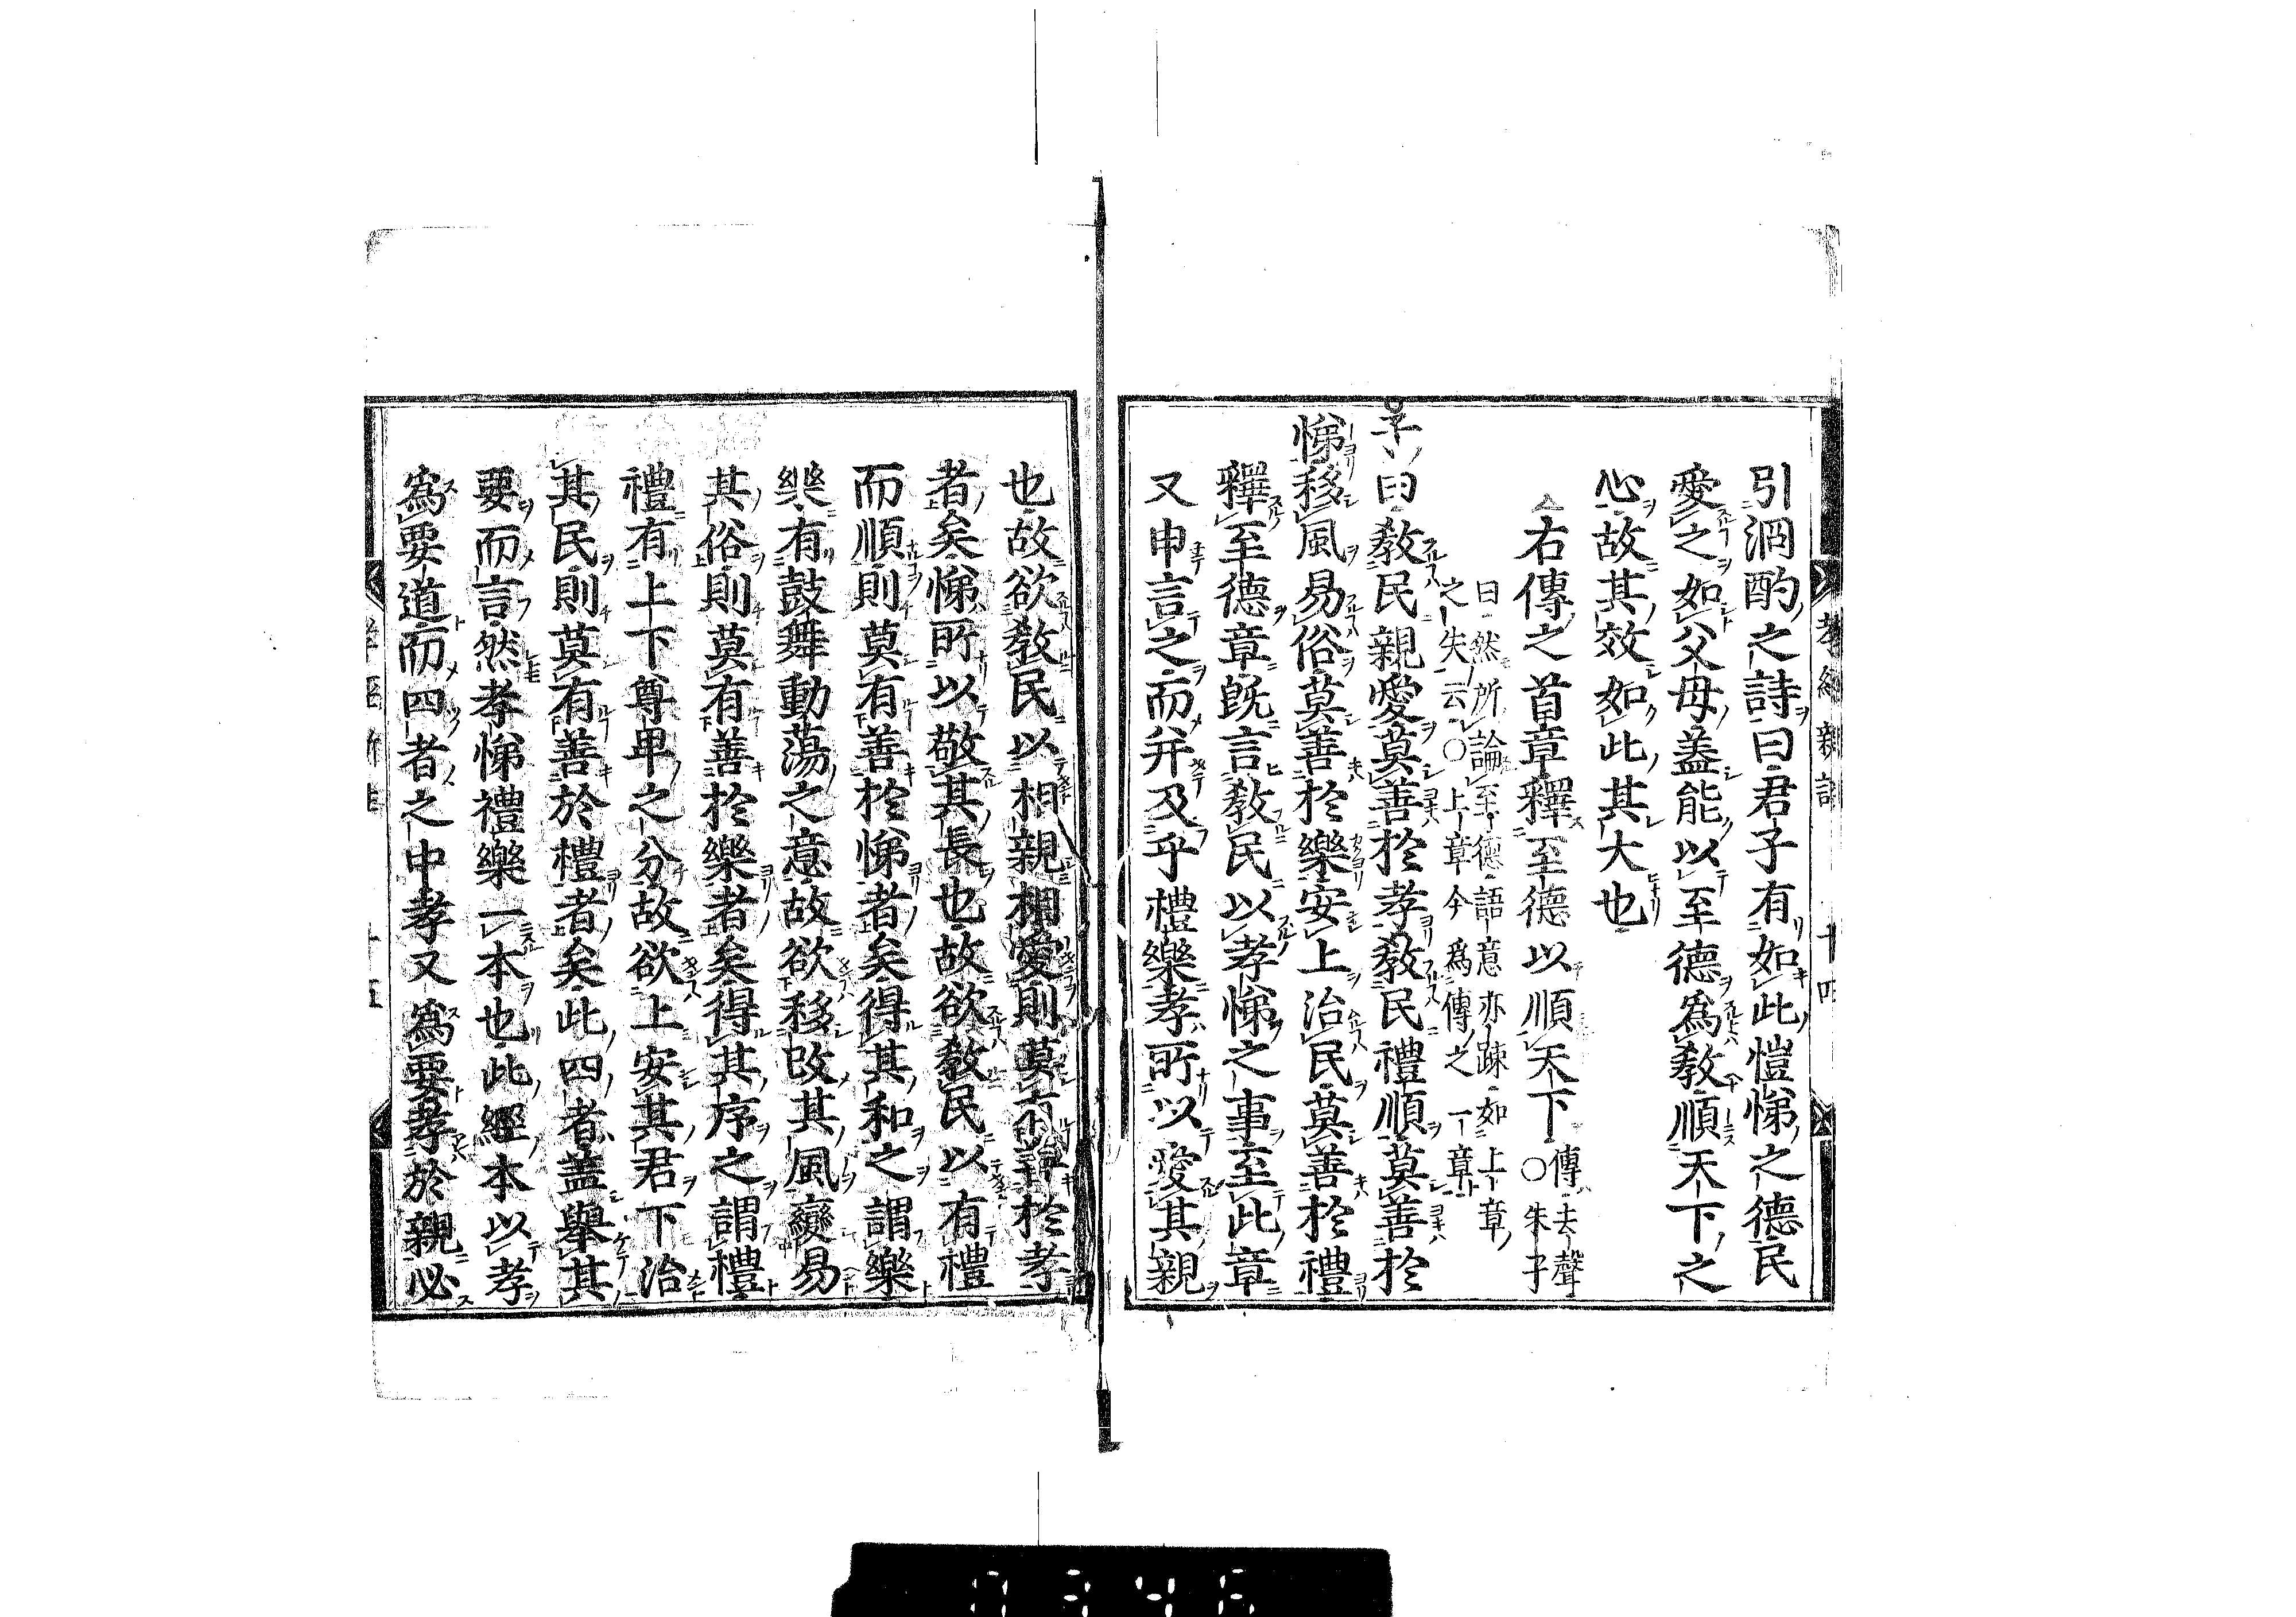 引泂酌之詩曰君子有如此愷悌之德民
愛之如父母蓋能以至德爲教順天下之
心故其效如此其大也
右傳之首章釋至德以順天下傳去聲○朱子
曰然所論至德語意亦踈如上章
之失云○上章今爲傳之一章
子曰教民親愛莫善於孝教民禮順莫善於
悌移風易俗莫善於樂安上治民莫善於禮
釋至德章既言教民以孝悌之事至此章
又申言之而并及乎禮樂孝所以愛其親
也故欲教民以相親相愛則莫有善於孝
者矣悌所以敬其長也故欲教民以有禮
而順則莫有善於悌者矣得其和之謂樂
樂有鼓舞動蕩之意故欲移改其風變易
其俗則莫有善於樂者矣得其序之謂禮
禮有上下尊卑之分故欲上安其君下治
其民則莫有善於禮者矣此四者蓋舉其
要而言然孝悌禮樂一本也此經本以孝
爲要道而四者之中孝又爲要孝於親必